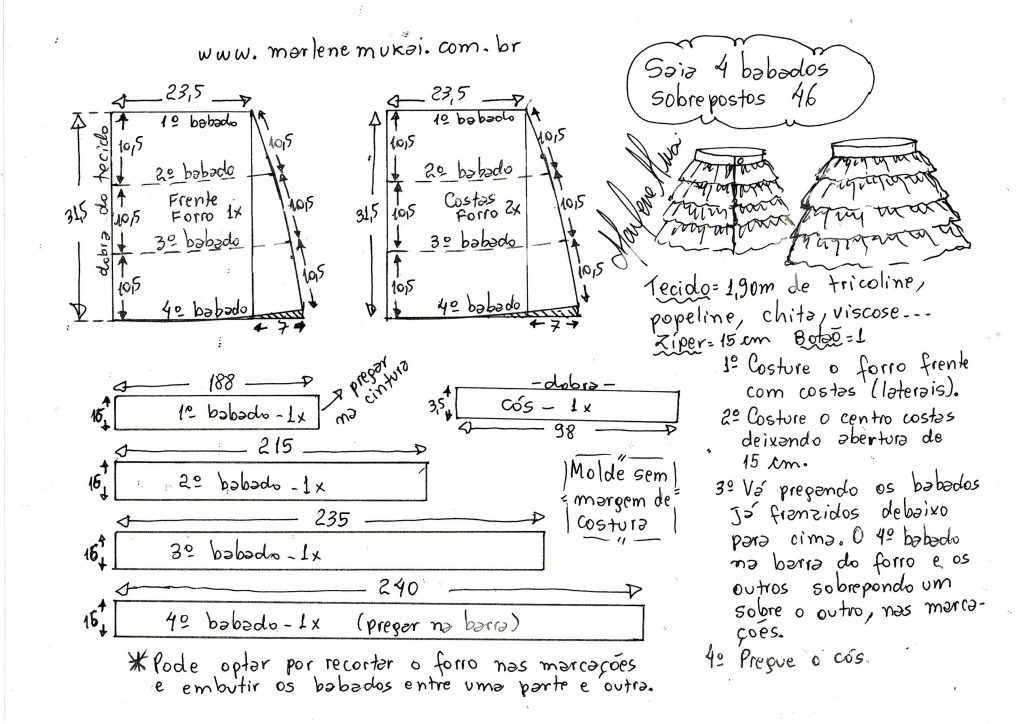 www.marlenemukai.com.br
Saia 4 babados
sobrepostos 46
23,5
1º babado
10,5
10,5
2º babado
dobra do tecido
31,5
Frente
Forro 1x
10,5
10,5
3º babado
10,5
10,5
4º babado
7
23,5
1º babado
10,5
10,5
2º babado
31,5
Costas
Forro 2x
10,5
10,5
3º babado
10,5
10,5
4º babado
7
Marlene Mukai
Tecido = 1,90m de tricoline,
popeline, chita, viscose...
Zíper = 15 cm Botão = 1
1º Costure o forro frente
com costas (laterais).
2º Costure o centro costas
deixando abertura de
15 cm.
3º Vá pregando os babados
já franzidos debaixo
para cima. O 4º babado
na barra do forro e os
outros sobrepondo um
sobre o outro, nas marca-
ções.
4º Pregue o cós.
188
16
1º babado - 1x
pregar
na cintura
- dobra -
3,5
cós - 1x
98
215
16
2º babado - 1x
Molde sem
margem de
costura
235
16
3º babado - 1x
240
16
4º babado - 1x (pregar na barra)
* Pode optar por recortar o forro nas marcações
e embutir os babados entre uma parte e outra.